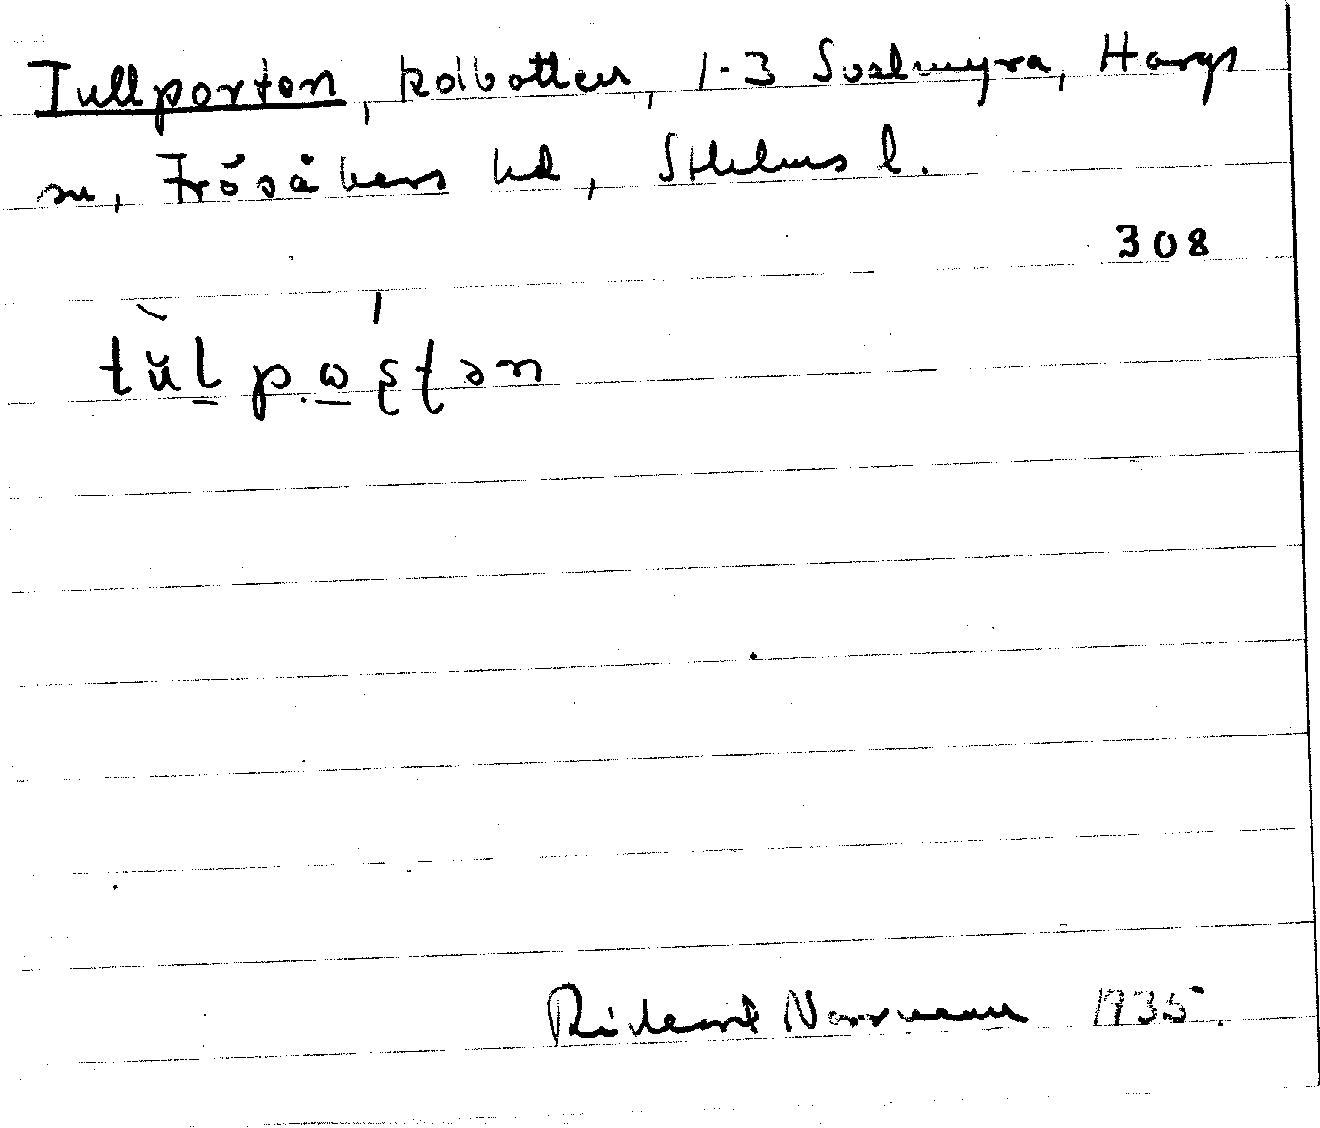 Tullporten, kolbotten, 1-3 Svalmyra, Hargs
sn, Frösåkers hd, Sthlms l.
308
tŭl p.ωştən
Rickard Norrman 1935.